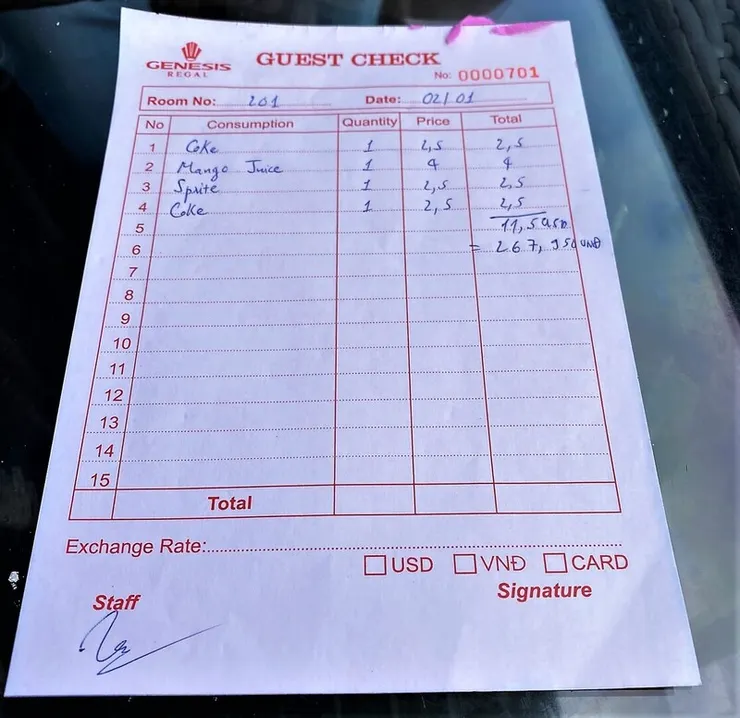 GENESIS
REGAL
GUEST CHECK
No: 0000701
Room No: 201 Date: 02/01
No Consumption Quantity Price Total
1 Coke 1 2,5 2,5
2 Mango Juice 1 4 4
3 Sprite 1 2,5 2,5
4 Coke 1 2,5 2,5
5 11,5 USD
6 = 267,950 VNĐ
7
8
9
10
11
12
13
14
15
Total
Exchange Rate:
USD VNĐ CARD
Staff Signature